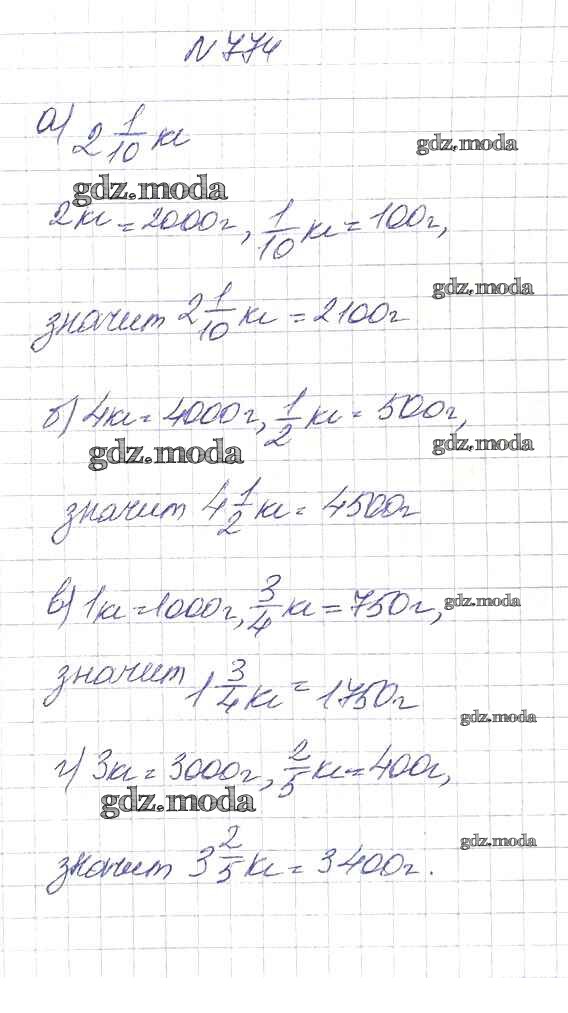 № 774
а) 2 1/10 кг
gdz.moda
gdz.moda
2 кг = 2000 г, 1/10 кг = 100 г,
gdz.moda
значит 2 1/10 кг = 2100 г
б) 4 кг = 4000 г, 1/2 кг = 500 г,
gdz.moda
gdz.moda
значит 4 1/2 кг = 4500 г
в) 1 кг = 1000 г, 3/4 кг = 750 г,
gdz.moda
значит 1 3/4 кг = 1750 г
gdz.moda
г) 3 кг = 3000 г, 2/5 кг = 400 г,
gdz.moda
gdz.moda
значит 3 2/5 кг = 3400 г.